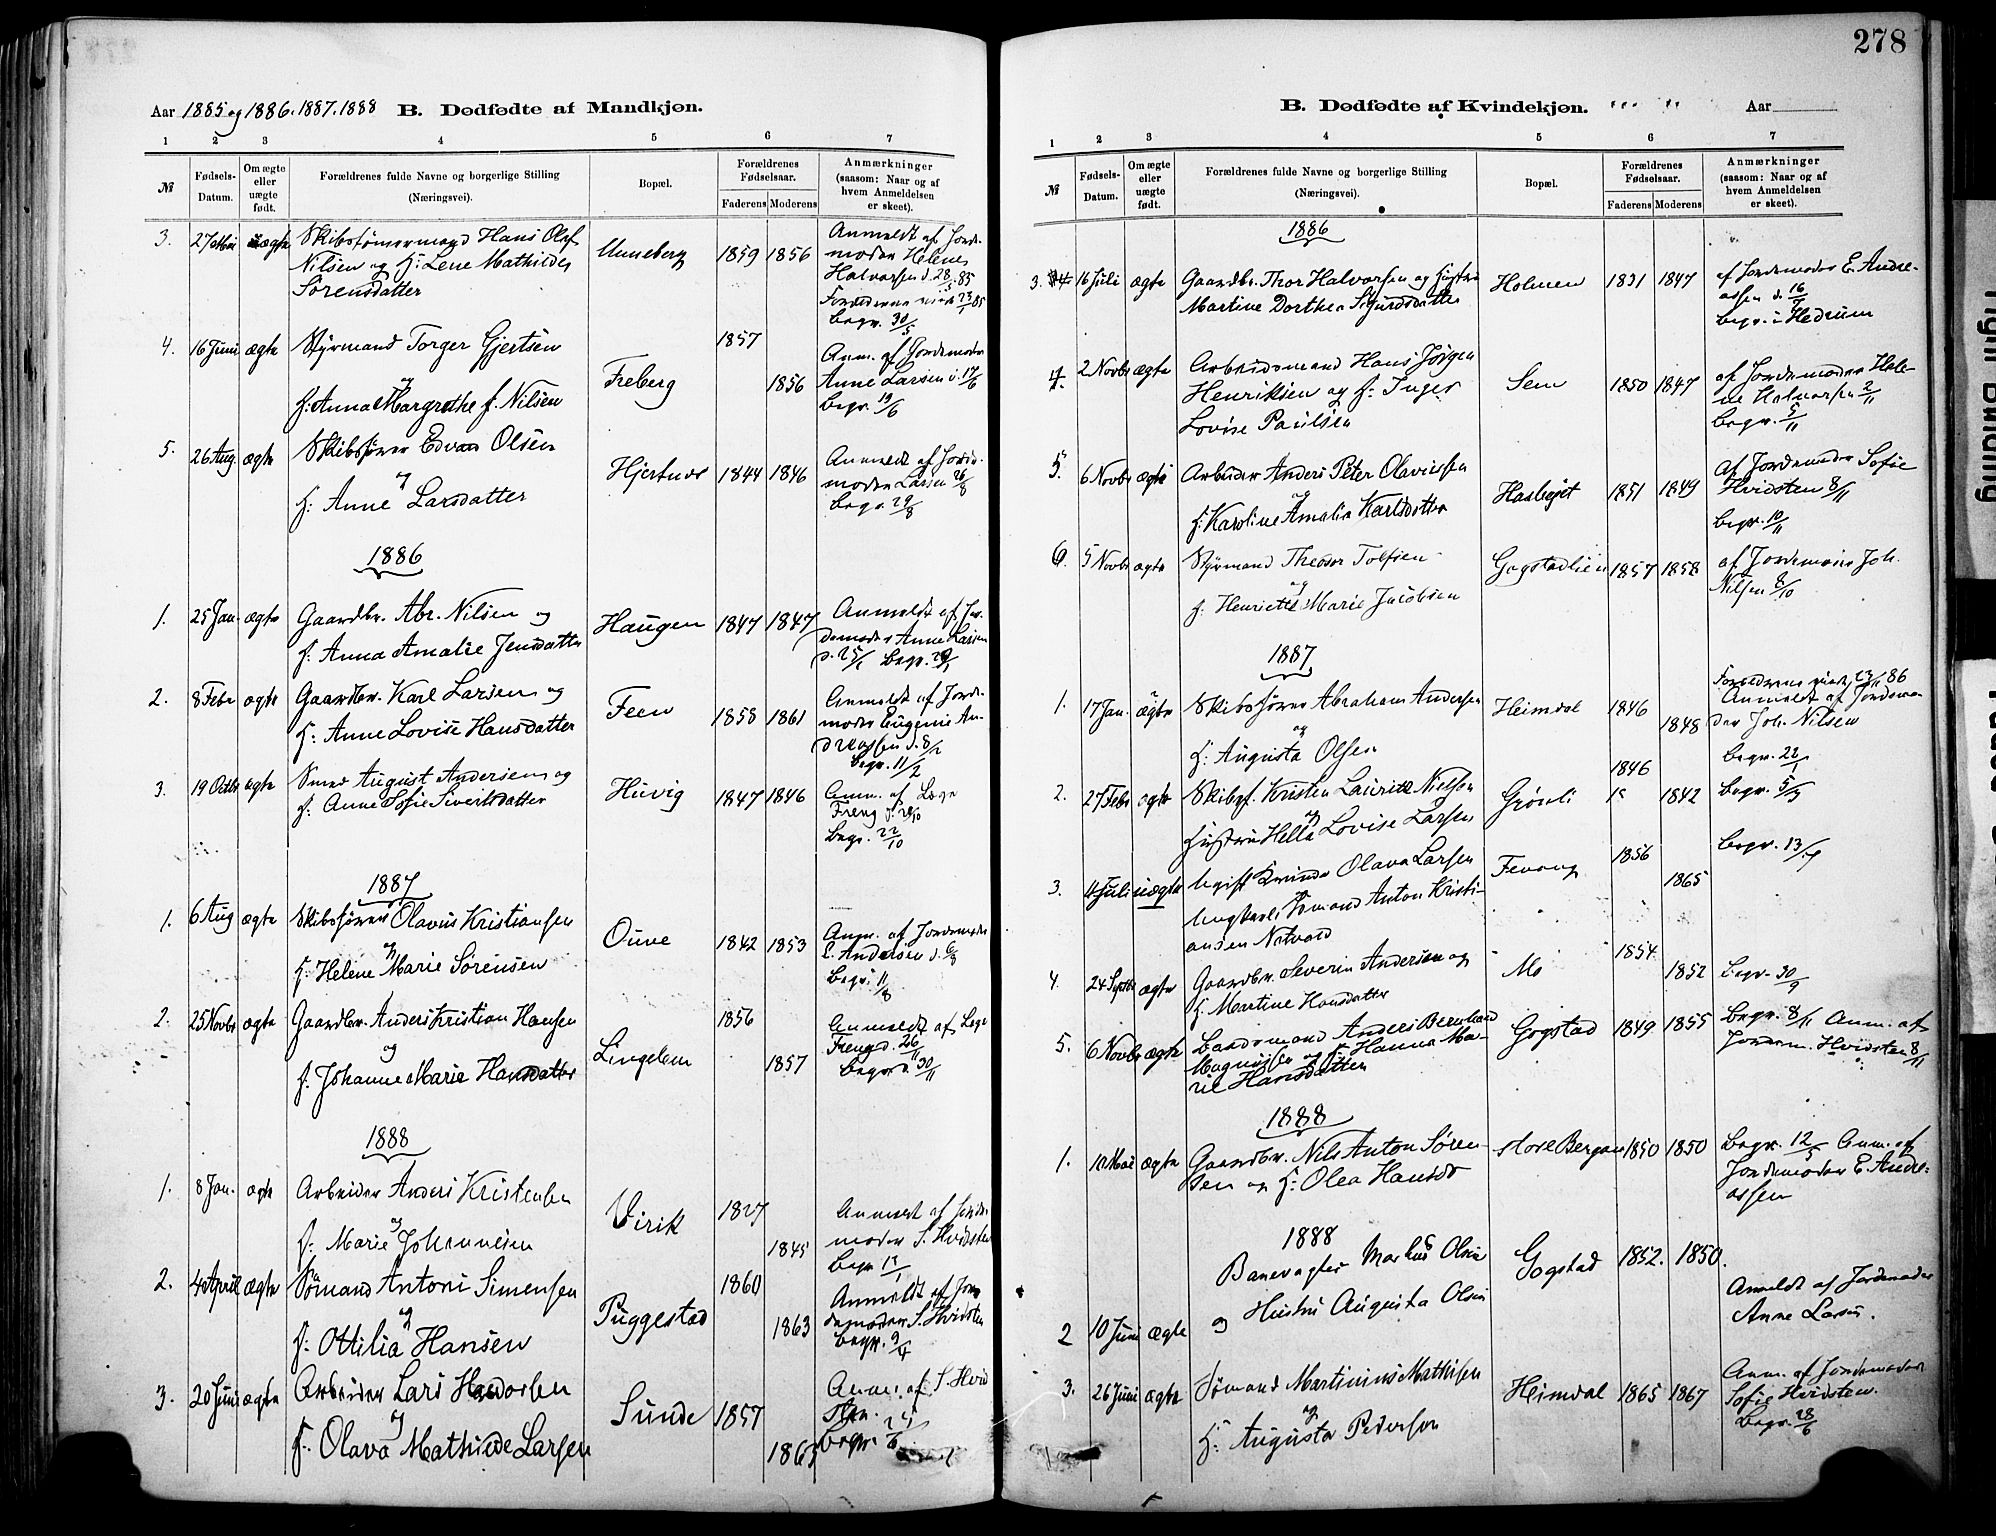 278
Aar 1885 og 1886. 1887. 1888 B. Dødfødte af Mandkjøn.
1 2 3 4 5 6 7
№ Fødsels-Datum. Om ægte eller uægte født. Forældrenes fulde Navne og borgerlige Stilling (Næringsvei). Bopæl. Forældrenes Fødselsaar. Faderens Moderens Anmærkninger (saasom: Naar og af hvem Anmeldelsen er skeet).
3. 27 Mai uægte Skibstømermand Hans Olaf Unneberg 1859 1856 Anmeldt af Jorde-
Nilsen og f: Lene Mathilde moder Helene
Sørensdatter Halvorsen d. 28/5 85
begr. 30/5
4. 16 Juni ægte Styrmand Torger Gjertsen Freberg 1857 Anm. af Jordemoder
og 1856 Anne Larsen d. 17/6
f: Anna Margrethe f. Nilsen begr. 19/6
5. 26 Aug. ægte Skibsfører Edvard Olsen Hjertnes 1844 1846 Anmeldt af Jorde-
og moder Larsen 26/8
f: Anne Larsdatter begr. 29/8
1886
1. 25 Jan. ægte Gaardbr. Abr. Nilsen og Haugen 1847 1847 Anmeldt af Jor-
f: Anna Amalie Jensdatter demoder Anne Larsen
d. 25/1 begr. 29/1
2. 8 Febr ægte Gaardbr. Karl Larsen og Feen 1858 1861 Anmeldt af Jorde-
f: Anne Lovise Hansdatter moder Eugenie An-
dreassen d. 8/2
begr. 11/2
3. 19 Octbr ægte Smed August Andersen og Huvig 1847 1846 Anm. af Læge
f: Anne Sofie Sivertsdatter Freng d. 20/10
begr. 22/10
1887
1. 6 Aug ægte Skibsfører Olavus Kristiansen Ouve 1842 1853 Anm. af Jordemoder
og E. Andersen d. 6/8
f: Helene Marie Sørensen begr. 11/8
2. 25 Novbr ægte Gaardbr. Anders Kristian Hansen Lingelem 1856 Anmeldt af Læge
og Freng d. 26/11
f: Johanne Marie Hansdatter 1857 begr. 30/11
1888
1. 8 Jan. ægte Arbeider Anders Kristensen Virik 1827 Anmeldt af Jorde-
og moder S. Hvidsten
f: Marie Johannesen 1845 begr. 12/1
2. 4 April ægte Sømand Antoni Simensen Puggestad 1860 Anmeldt af Jor-
og demoder S. Hvidsten
f: Ottilia Hansen 1863 begr. 9/4
3. 20 Juni ægte Arbeider Lars Sunde 1857 Anm. af S. Hvid
og sten.
f: Olava Mathilde Larsen 1865 begr. 24/6
B. Dødfødte af Kvindekjøn. Aar
1 2 3 4 5 6 7
№ Fødsels-Datum. Om ægte eller uægte født. Forældrenes fulde Navne og borgerlige Stilling (Næringsvei). Bopæl. Forældrenes Fødselsaar. Faderens Moderens Anmærkninger (saasom: Naar og af hvem Anmeldelsen er skeet).
1886
3. 16 Juli ægte Gaardbr. Thor Halvorsen og Hustru Holmen 1831 1847 af Jordemoder E. Andre-
Martine Dorthea Sigurdsdatter assen d. 16/7
begr. i Hedrum
4. 2 Novbr ægte Arbeidsmand Hans Jørgen Sem 1850 1847 af Jordemoder Hele-
Henriksen og f: Inger ne Halvorsen 2/11
Lovise Paulsen begr. 5/11
5. 6 Novbr ægte Arbeider Anders Peter Olaviessen Hasleøjet 1851 1849 af Jordemoder Sofie
og Hvidsten 8/11
f: Karoline Amalia Karlsdatter begr. 10/11
6. 5 Novbr ægte Styrmand Theodor Tolfsen Gogstadlien 1857 1858 af Jordemoder Joh.
og Nilsen 8/10
f: Henriette Marie Jacobsen
1887
1. 17 Jan. ægte Skibsfører Abraham Andersen Heimdal 1846 Anmeldt af Jordemo-
og 1848 der Joh. Nilsen
f: Augusta Olsen begr. 22/1
2. 27 Febr ægte Skibsf. Kristen Lauritz Nielsen Grønli 1846 1842 begr. 5/3
og
Hustru Hella Lovise Larsen
3. 4 Juli uægte Ugift Kvinde Olava Larsen Fevang 1856 1865 begr. 13/7
Ungkarl Sømand Anton Kristi-
ansen
4. 24 Septbr ægte Gaardbr. Severin Andersen og Mo 1854 1852 begr. 30/9
f: Martine Hansdatter
5. 6 Novbr ægte Baadsmand Anders Bernhard Gogstad 1849 1855 begr. 8/11 Anm. af
Magnussen og f: Hanna Ma- Jordem. Hvidsten 8/11
rie Hansdatter
1888
1. ægte Gaardbr. Nils Anton Søren- Store Bergan 1850 1850 begr. 12/5 Anm. af
sen og f: Olea Hansd Jordemoder E. Andre-
assen
1888
Banevagter Markus Olsen Gogstad 1852. 1850. Anmeldt af Jordemoder
2 10 Juni ægte og Hustru Augusta Olsen Anne Larsen.
3. 26 Juni ægte Sømand Martinius Mathisen Heimdal 1865 1867 Anm. af Jordemoder
og Sofie Hvidsten.
f: Augusta Pedersen begr. 28/6